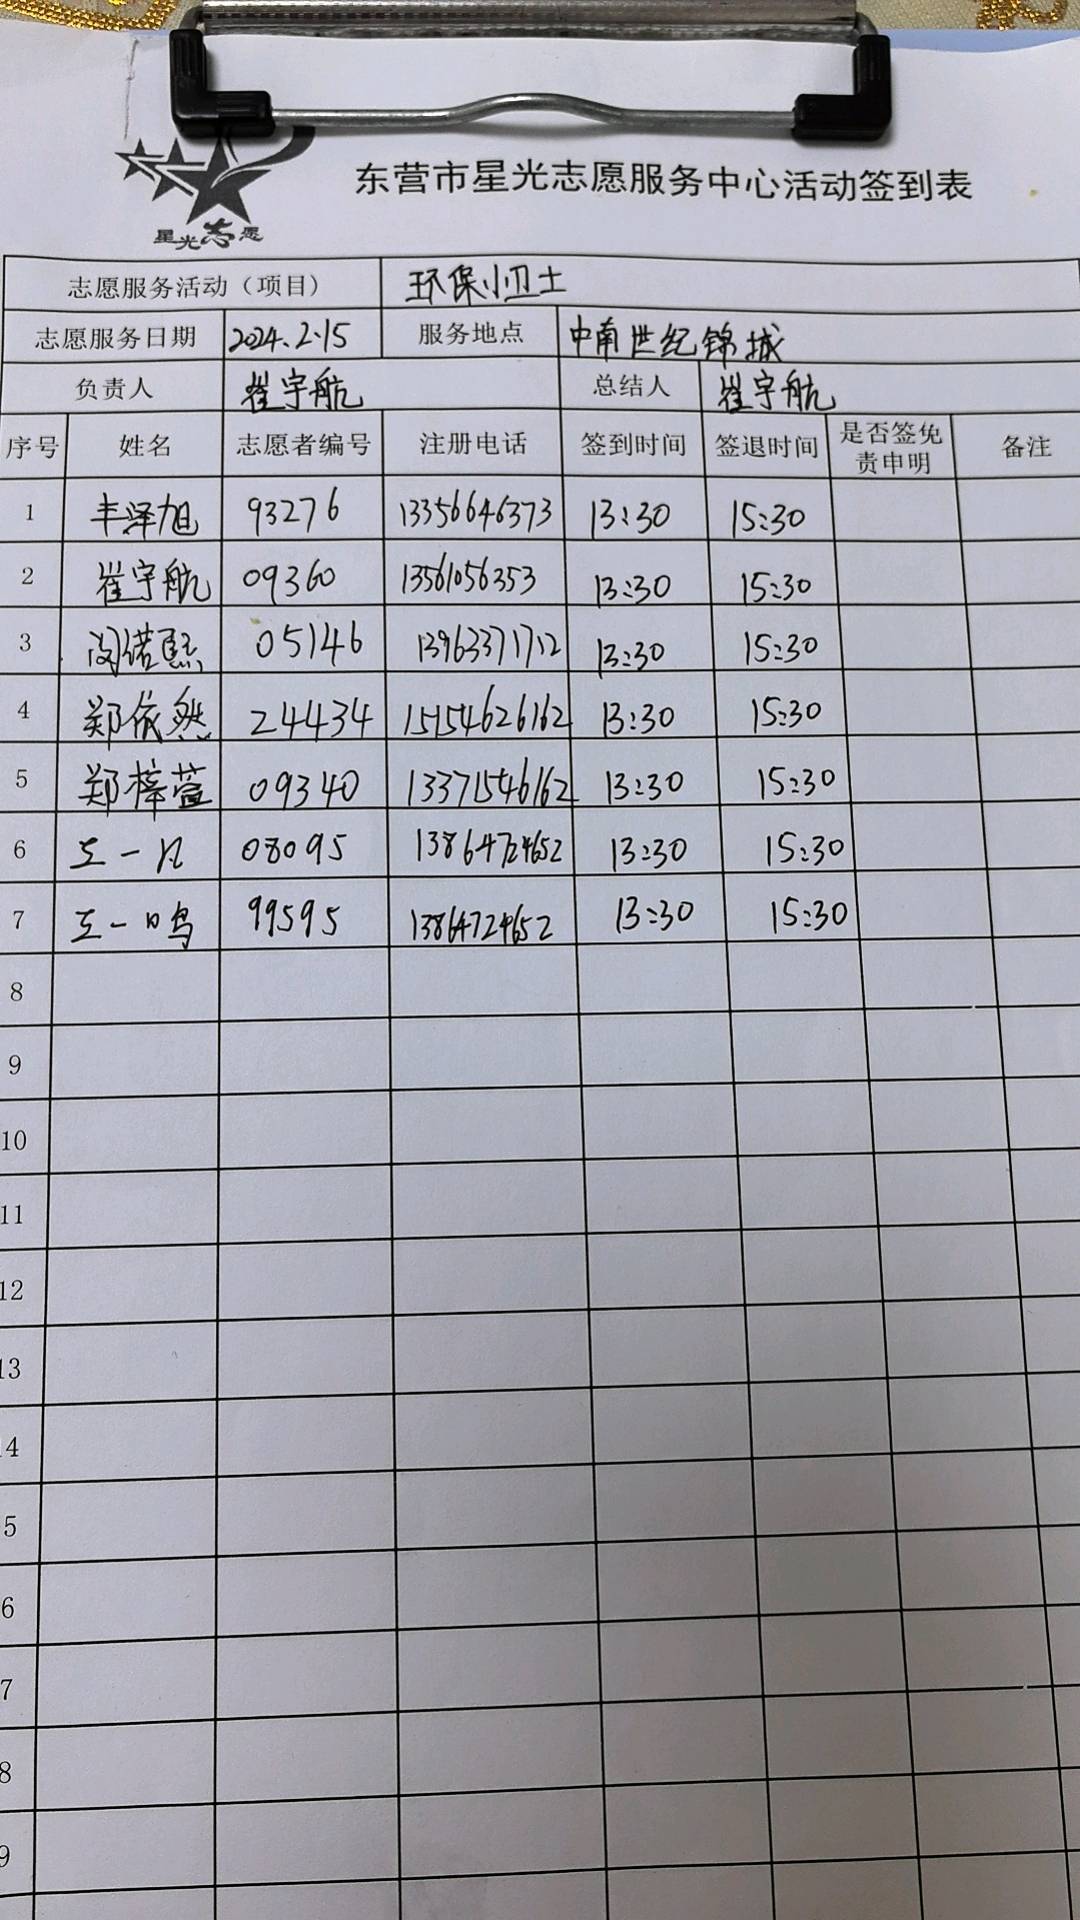 东营市星光志愿服务中心活动签到表
星光志愿
志愿服务活动（项目） 环保小卫士
志愿服务日期 2024.2.15 服务地点 中南世纪锦城
负责人 崔宇航 总结人 崔宇航
序号 姓名 志愿者编号 注册电话 签到时间 签退时间 是否签免责申明 备注
1 丰泽旭 93276 13356646373 13:30 15:30
2 崔宇航 09360 13561056353 13:30 15:30
3 闵诺熙 05146 13963371712 13:30 15:30
4 郑依然 24434 15154626162 13:30 15:30
5 郑梓萱 09340 13371546162 13:30 15:30
6 王一 08095 13864724652 13:30 15:30
7 王一鸣 99595 13864724652 13:30 15:30
8
9
10
11
12
13
14
5
6
7
8
9